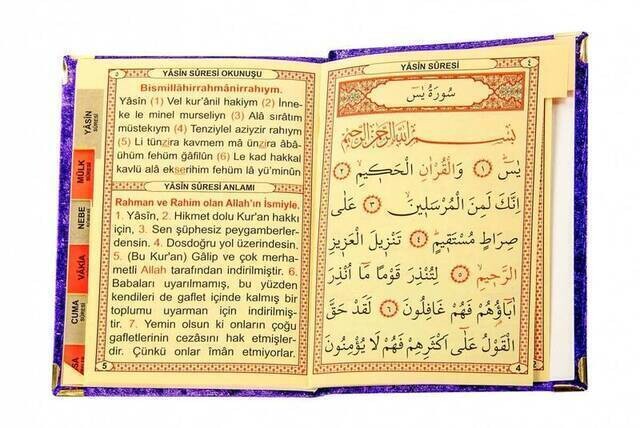 YÂSİN SÛRESİ
٤
سُورَةُ يٰسٓ
بِسْمِ اللّٰهِ الرَّحْمٰنِ الرَّحِيمِ
يٰسٓ ﴿١﴾ وَالْقُرْاٰنِ الْحَكِيمِ ﴿٢﴾
اِنَّكَ لَمِنَ الْمُرْسَلِينَ ﴿٣﴾ عَلٰى
صِرَاطٍ مُسْتَقِيمٍ ﴿٤﴾ تَنْزِيلَ الْعَزِيزِ
الرَّحِيمِ ﴿٥﴾ لِتُنْذِرَ قَوْمًا مَٓا اُنْذِرَ
اٰبَٓاؤُ۬هُمْ فَهُمْ غَافِلُونَ ﴿٦﴾ لَقَدْ حَقَّ
الْقَوْلُ عَلٰٓى اَكْثَرِهِمْ فَهُمْ لَا يُؤْمِنُونَ
4
2
٥
YÂSİN SÛRESİ OKUNUŞU
Bismillâhirrahmânirrahıym.
Yâsîn (1) Vel kur'ânil hakiym (2) İnne-
ke le minel murseliyn (3) Alâ sırâtım
müstekıym (4) Tenziylel aziyzir rahıym
(5) Li tünzira kavmem mâ ünzira âbâ-
ühüm fehüm gâfilûn (6) Le kad hakkal
kavlü alâ ekserihim fehüm lâ yü'minûn
YÂSİN SÛRESİ ANLAMI
Rahman ve Rahim olan Allah'ın İsmiyle.
1. Yâsîn, 2. Hikmet dolu Kur'an hakkı
için, 3. Sen şüphesiz peygamberler-
densin. 4. Dosdoğru yol üzerindesin.
5. (Bu Kur'an) Gâlip ve çok merha-
metli Allah tarafından indirilmiştir. 6.
Babaları uyarılmamış, bu yüzden
kendileri de gaflet içinde kalmış bir
toplumu uyarman için indirilmiş-
tir. 7. Yemin olsun ki onların çoğu
gafletlerinin cezasını hak etmişler-
dir. Çünkü onlar îman etmiyorlar.
5
YÂSİN
SÛRESİ
MÜLK
SÛRESİ
NEBE
SÛRESİ
VÂKIA
SÛRESİ
CUMA
SÛRESİ